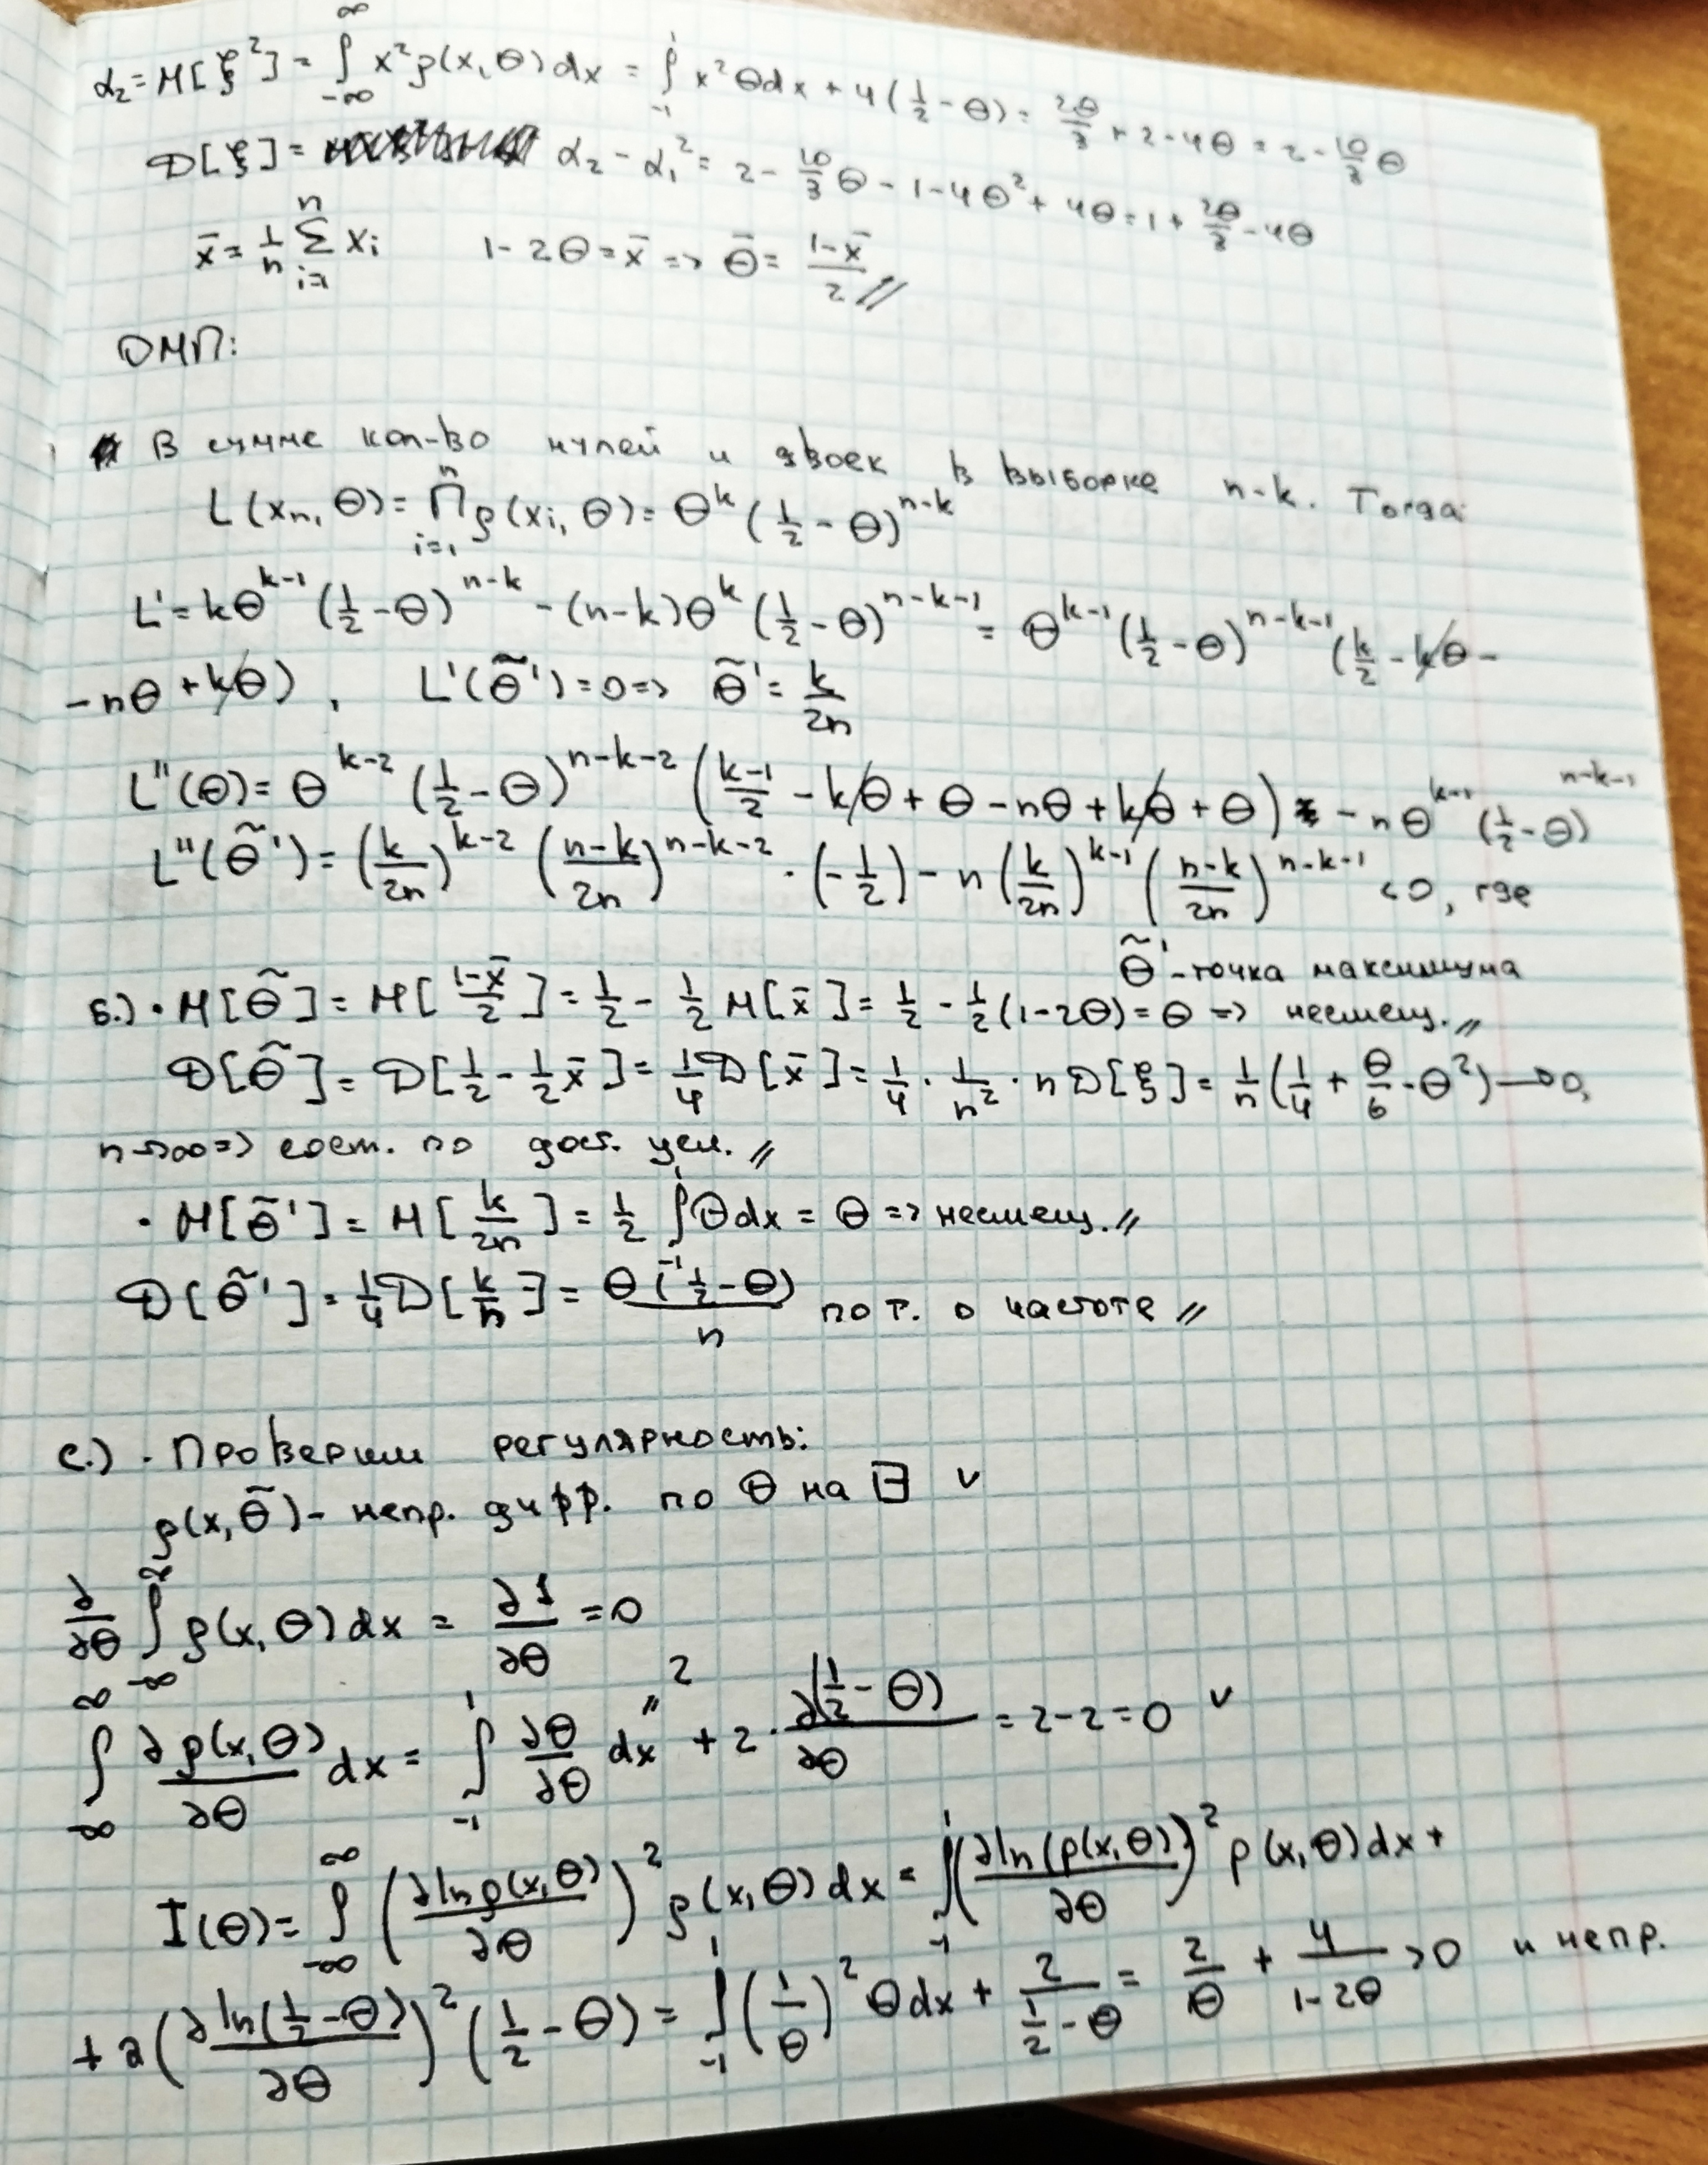 α₂ = M[ξ²] = ∫_{-∞}^{∞} x² ρ(x, θ) dx = ∫_{-1}^{1} x² θ dx + 4(1/2 - θ) = 2θ/3 + 2 - 4θ = 2 - 10/3 θ
D[ξ] = α₂ - α₁² = 2 - 10/3 θ - 1 - 4θ² + 4θ = 1 + 2θ/3 - 4θ
x̄ = 1/n Σ_{i=1}^{n} xᵢ 1 - 2θ = x̄ => θ̃ = (1 - x̄)/2 //
ОМП:
В сумме кол-во нулей и двоек в выборке n-k. Тогда:
L(xₙ, θ) = Π_{i=1}^{n} ρ(xᵢ, θ) = θ^k (1/2 - θ)^{n-k}
L' = kθ^{k-1} (1/2 - θ)^{n-k} - (n-k)θ^k (1/2 - θ)^{n-k-1} = θ^{k-1} (1/2 - θ)^{n-k-1} (k/2 - kθ -
- nθ + kθ), L'(θ̃') = 0 => θ̃' = k/2n
L''(θ) = θ^{k-2} (1/2 - θ)^{n-k-2} ((k-1)/2 - kθ + θ - nθ + kθ + θ) - nθ^{k-1} (1/2 - θ)^{n-k-1}
L''(θ̃') = (k/2n)^{k-2} ((n-k)/2n)^{n-k-2} · (-1/2) - n (k/2n)^{k-1} ((n-k)/2n)^{n-k-1} < 0, где
θ̃' - точка максимума
б.) · M[θ̃] = M[(1-x̄)/2] = 1/2 - 1/2 M[x̄] = 1/2 - 1/2 (1-2θ) = θ => несмещ. //
D[θ̃] = D[1/2 - 1/2 x̄] = 1/4 D[x̄] = 1/4 · 1/n² · n D[ξ] = 1/n (1/4 + θ/6 - θ²) → 0,
n→∞ => сост. по дост. усл. //
· M[θ̃'] = M[k/2n] = 1/2 ∫_{-1}^{1} θ dx = θ => несмещ. //
D[θ̃'] = 1/4 D[k/n] = θ(1/2 - θ)/n по т. о частоте //
с.) · Проверим регулярность:
ρ(x, θ̃) - непр. дифф. по θ на ∃ ∨
∂/∂θ ∫_{-∞}^{∞} ρ(x, θ) dx = ∂1/∂θ = 0
∫_{-∞}^{∞} ∂ρ(x, θ)/∂θ dx = ∫_{-1}^{1} ∂θ/∂θ dx " 2 + 2 · ∂(1/2 - θ)/∂θ = 2 - 2 = 0 ∨
I(θ) = ∫_{-∞}^{∞} (∂ln ρ(x, θ)/∂θ)² ρ(x, θ) dx = ∫_{-1}^{1} (∂ln(ρ(x, θ))/∂θ)² ρ(x, θ) dx +
+ 2(∂ln(1/2 - θ)/∂θ)² (1/2 - θ) = ∫_{-1}^{1} (1/θ)² θ dx + 2/(1/2 - θ) = 2/θ + 4/(1-2θ) > 0 и непр.